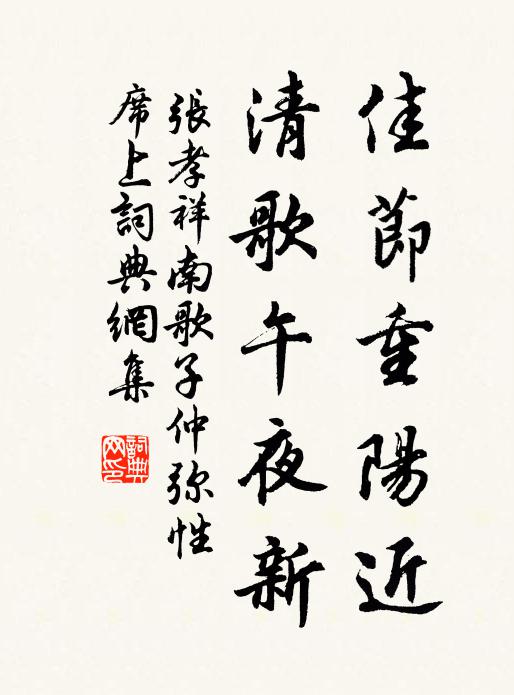 佳節重陽近
清歌午夜新
張孝祥南歌子仲弥性
席上詞典網集
詞典网印